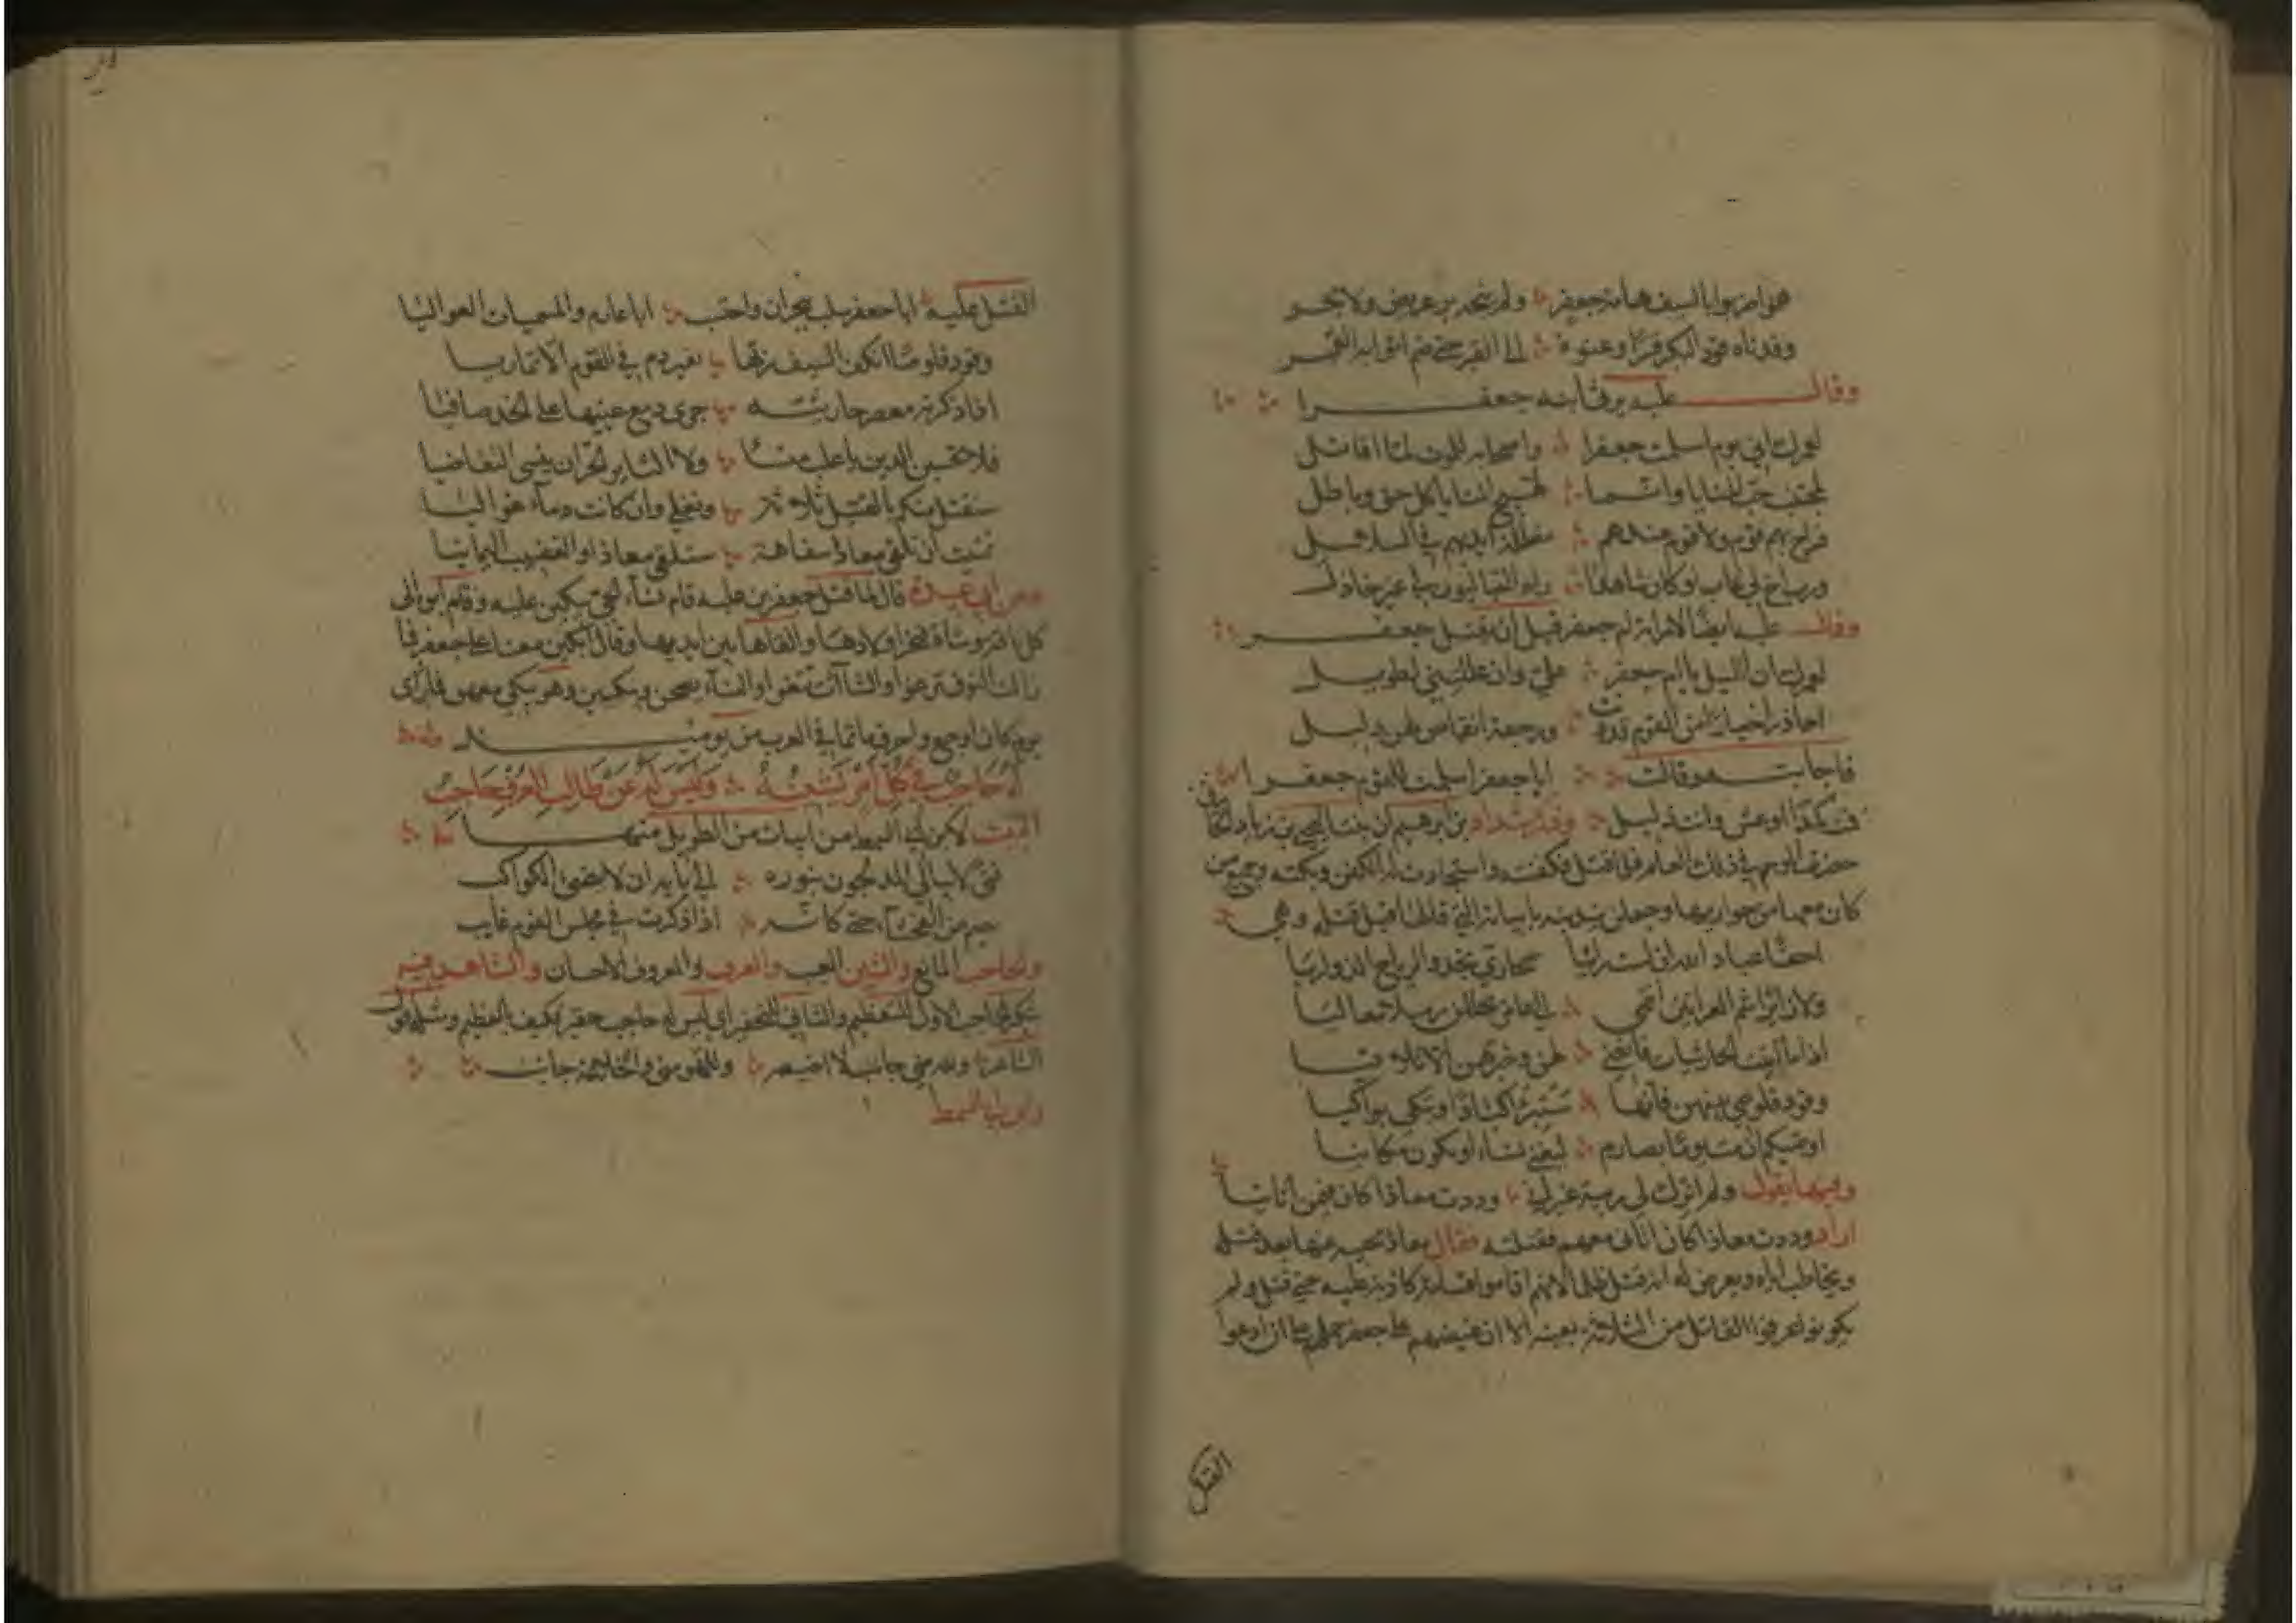 هم ضربوا بالسيف هامة جعفر ولم ينجه بر عريض ولا بحر
وقدناه قود البكر قسرا وعنوة الى القبر حتى ضم اثوابه القبر
وقال علبة يرثي ابنه جعفرا
لعمرك اني يوم اسلمت جعفرا واصحابه للموت لما اقاتل
لمجتنب حب المنايا وانما يهيج المنايا كل حق وباطل
فراح بهم قوم ولا قوم عندهم مغللة ايديهم في السلاسل
ورب اخ لي غاب لو كان شاهدا رآه التباليون لي غير خاذل
وقال علبة ايضا لامراته ام جعفر قبل ان يقتل جعفر
لعمرك ان الليل يا ام جعفر علي وان عللتني لطويل
احاذر اخبارا من القوم قد دنت ورجعة انقاض لهن دليل
فاجابته وقالت ابا جعفر اسلمت للقوم جعفرا
فمت كمدا او عش وانت ذليل وذكر شداد بن ابرهيم ان بنتا ليحيى بن زياد الحارثي
حضرت الموسم في ذلك العام لما قتل فكفنته واستجادت له الكفن وبكته وجميع من
كان معها من جواريها وجعلن يندبنه بابياته التي قالها قبل قتله وهي
احقا عباد الله ان لست رائيا صحاري نجد والرياح الذواريا
ولا زائرا شم العرانين انتمي الى عامر يحللن رملا معاليا
اذا ما اتيت الحارثيات فانعني لهن وخبرهن ان لا تلاقيا
وقود قلوصي بينهن فانها ستبرد اكبادا وتبكي بواكيا
اوصيكم ان مت يوما بعارم ليغني شيئا او يكون مكانيا
وفيها يقول ولم اترك لي ريبة غير انني وددت معاذا كان فيمن اتانيا
اراد وددت معاذا كان اتاني معهم فقتلته فقال معاذ يجيبه عنها بعد قتله
ويخاطب اباه ويعرض له انه قتل ظلما لانهم اقاموا قسامة كاذبة عليه حتى قتل ولم
يكونوا عرفوا القاتل من الثلاثة بعينه الا ان غيضهم على جعفر حملهم على ان ادعوا
القتل
القتل عليه ابا جعفر سلب بنجران واحتسب ابا عارم والمسمنات العواليا
وقود قلوصا اتلف السيف ربها بغير دم في القوم الا تماريا
اذا ذكرته معصر حارثية جرى دمع عينيها على الخد صافيا
فلا تحسبن الدين يا علب منسأ ولا الثاير الحران ينسى التقاضيا
سنقتل منكم بالقتيل ثلاثة ونغلي وان كانت دماء غواليا
تمنيت ان تلقى معاذا سفاهة ستلقى معاذا والقضيب اليمانيا
وعن ابي عبيدة قال لما قتل جعفر بن علبة قام نساء الحي يبكين عليه وقام ابوه الى
كل ناقة وشاة فنحر اولادها والقاها بين ايديها وقال ابكين معنا على جعفر فما
زالت النوق ترغو والشاآت تثغو والنساء يصحن ويبكين وهو يبكي معهن فما رأى
يوم كان اوجع ولا احرق ماتما في العرب من يومئذ وله
له حاجب في كل امر يشينه وليس له عن طالب العرف حاجب
البيت لابن ابي السمط من ابيات من الطويل منها
فتى لا يبالي المدلجون بنوره الى بابه ان لا تضيء الكواكب
يصم عن الفحشاء حتى كانه اذا ذكرت في مجلس القوم غايب
والحاجب المانع والشين العيب والعرف والمعروف الاحسان والشاهد فيه
تنكير الحاجب الاول للتعظيم والثاني للتحقير اي ليس له حاجب حقير فكيف بالعظيم ومثله قول
الشاعر ولله مني جانب لا اضيعه وللهو مني والخلاعة جانب
وابن ابي السمط